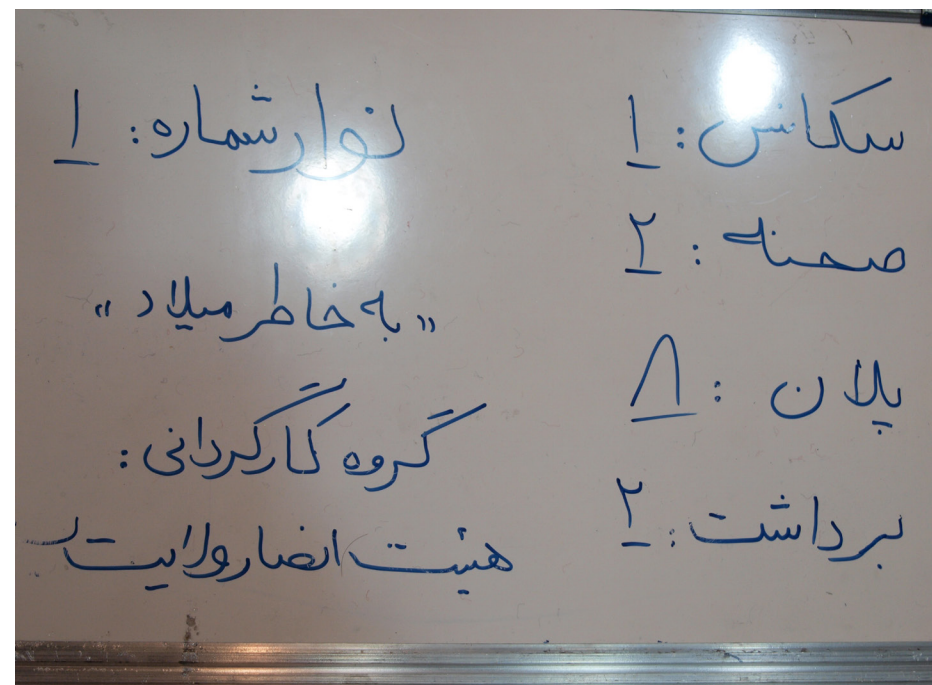 سکانس: ۱
صحنه: ۲
پلان: ۸
برداشت: ۲
نوار شماره: ۱
«به خاطر میلاد»
گروه کارگردانی:
هیئت انصار ولایت